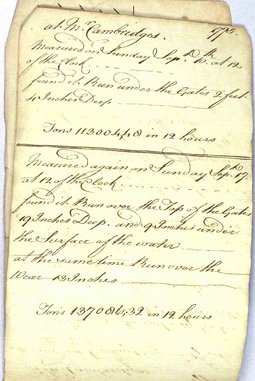 at Mr. Cambridges. 1775.
Measured on Sunday Sep. 10th. at 12
of the Clock
found it Run under the Gates 2 feet
4 Inches Deep
Tons 1130044,8 in 12 hours
Measured again on Sunday Sep. 17.
at 12 of the Clock
found it Run over the Top of the Gates
19 Inches Deep. and 9 Inches under
the Surface of the water
at the same time Run over the
Wear 13 Inches
Tons 1370863,2 in 12 hours